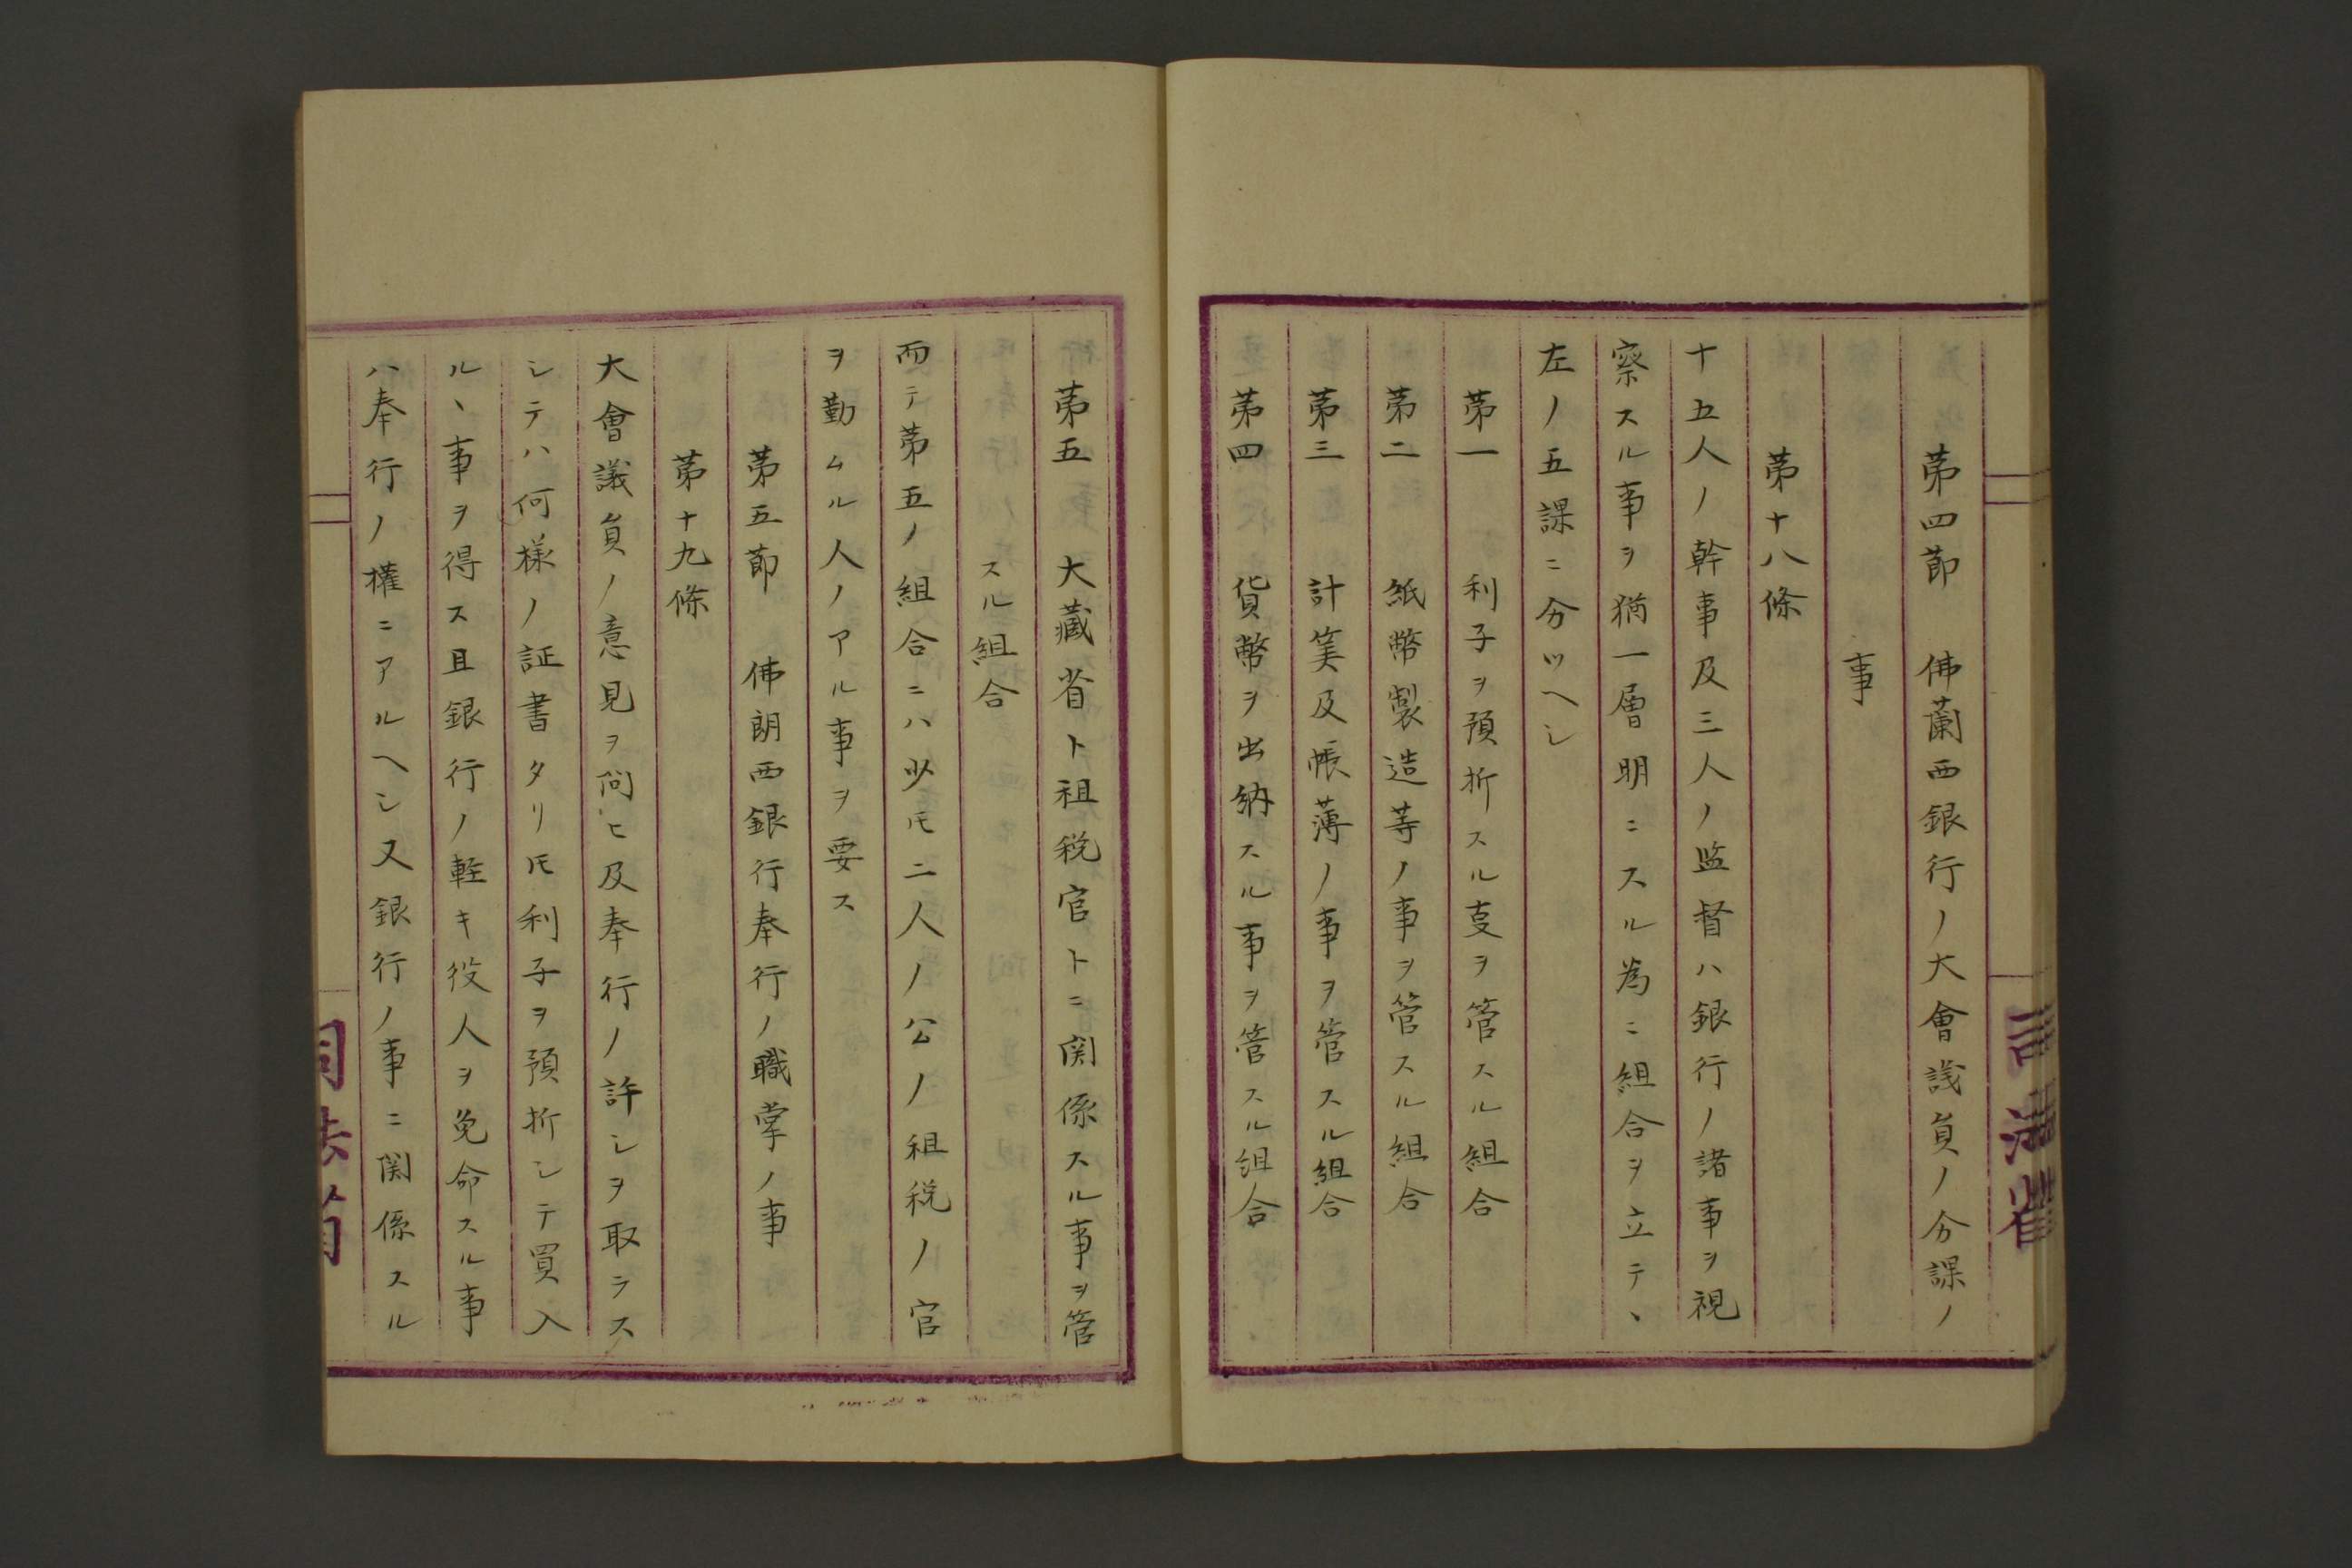 第四節　佛蘭西銀行ノ大會議員ノ分課ノ
事
第十八條
十五人ノ幹事及三人ノ監督ハ銀行ノ諸事ヲ視
察スル事ヲ猶一層明ニスル為ニ組合ヲ立テヽ
左ノ五課ニ分ツヘシ
第一　利子ヲ預折スル支ヲ管スル組合
第二　紙幣製造等ノ事ヲ管スル組合
第三　計筭及帳薄ノ事ヲ管スル組合
第四　貨幣ヲ出納スル事ヲ管スル組合
第五　大藏省ト祖税官トニ関係スル事ヲ管
スル組合
而テ第五ノ組合ニハ少ㇳモ二人ノ公ノ祖税ノ官
ヲ勤ムル人ノアル事ヲ要ス
第五節　佛朗西銀行奉行ノ職掌ノ事
第十九條
大會議員ノ意見ヲ問ヒ及奉行ノ許シヲ取ラス
シテハ何様ノ証書タリㇳモ利子ヲ預折シテ買入
ルヽ事ヲ得ス且銀行ノ軽キ役人ヲ免命スル事
ハ奉行ノ権ニアルヘシ又銀行ノ事ニ関係スル
司法省